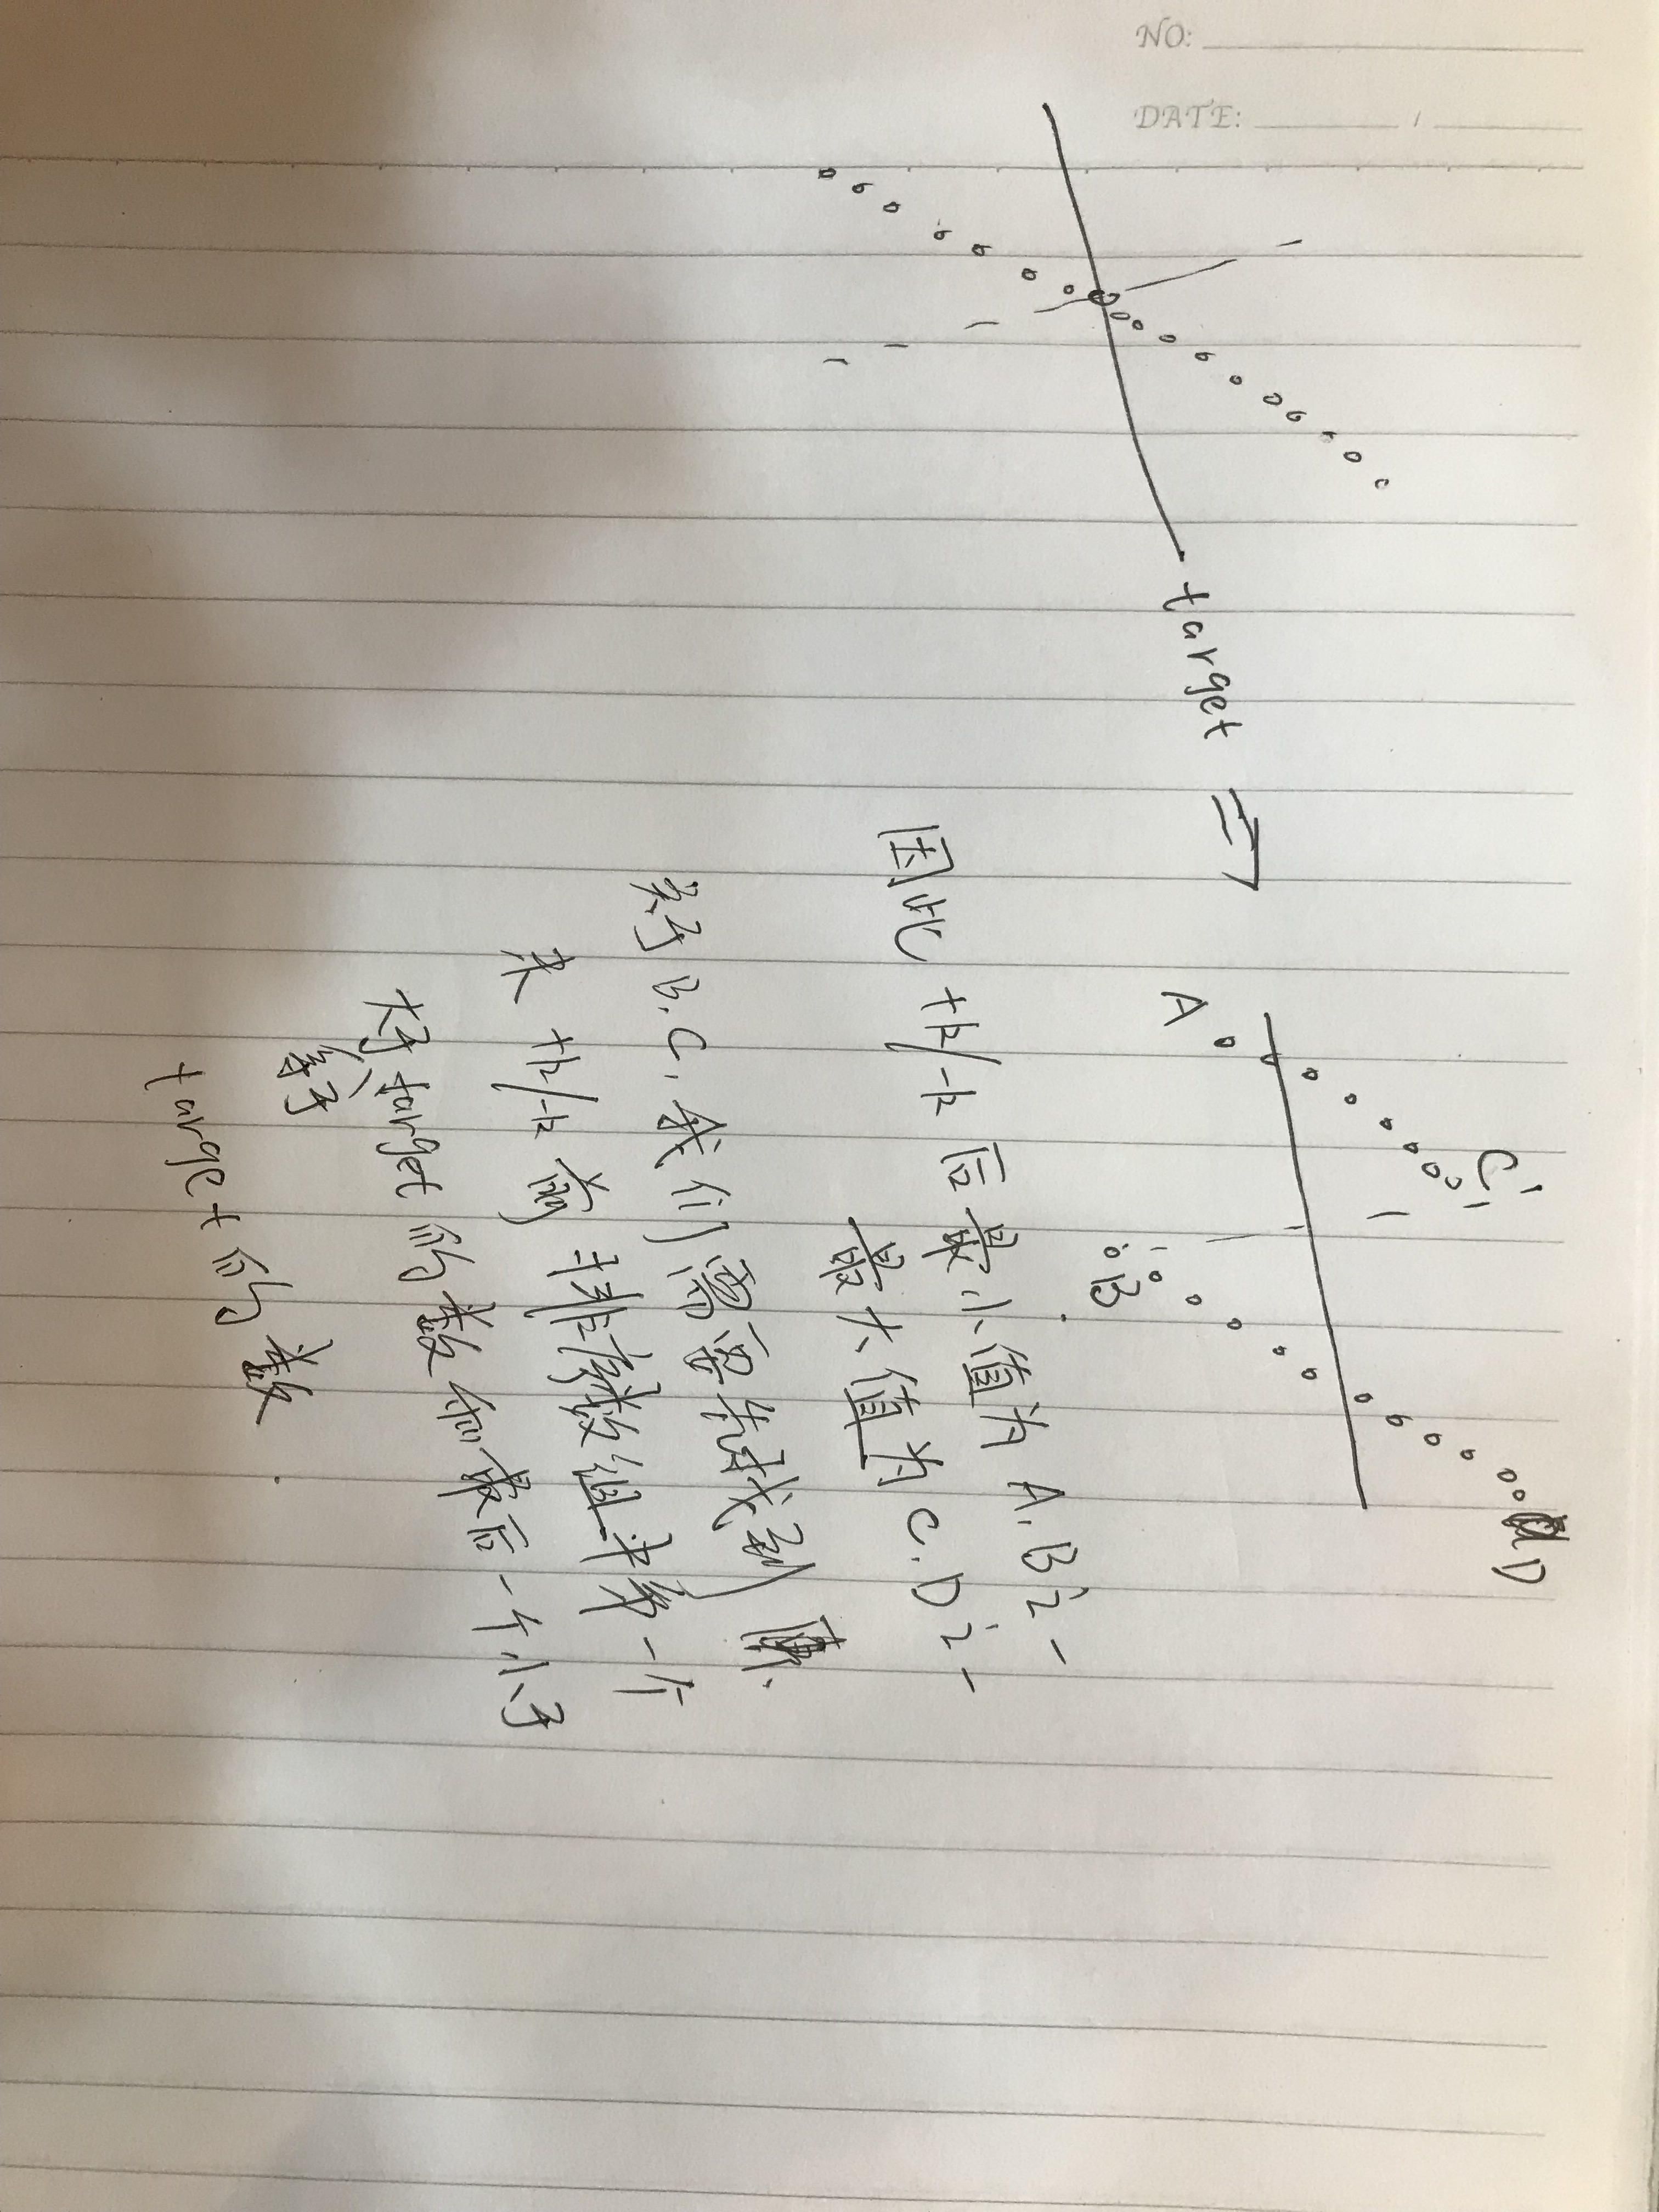 NO:
DATE: /
target
C
D
A
B
因此 +k/-k 后最小值为 A,B之一
最大值为 C,D之一
关于 B,C,我们需要先找到
未 +k/-k 前排序数组中第一个
大于target的数和最后一个小于
等于
target的数.